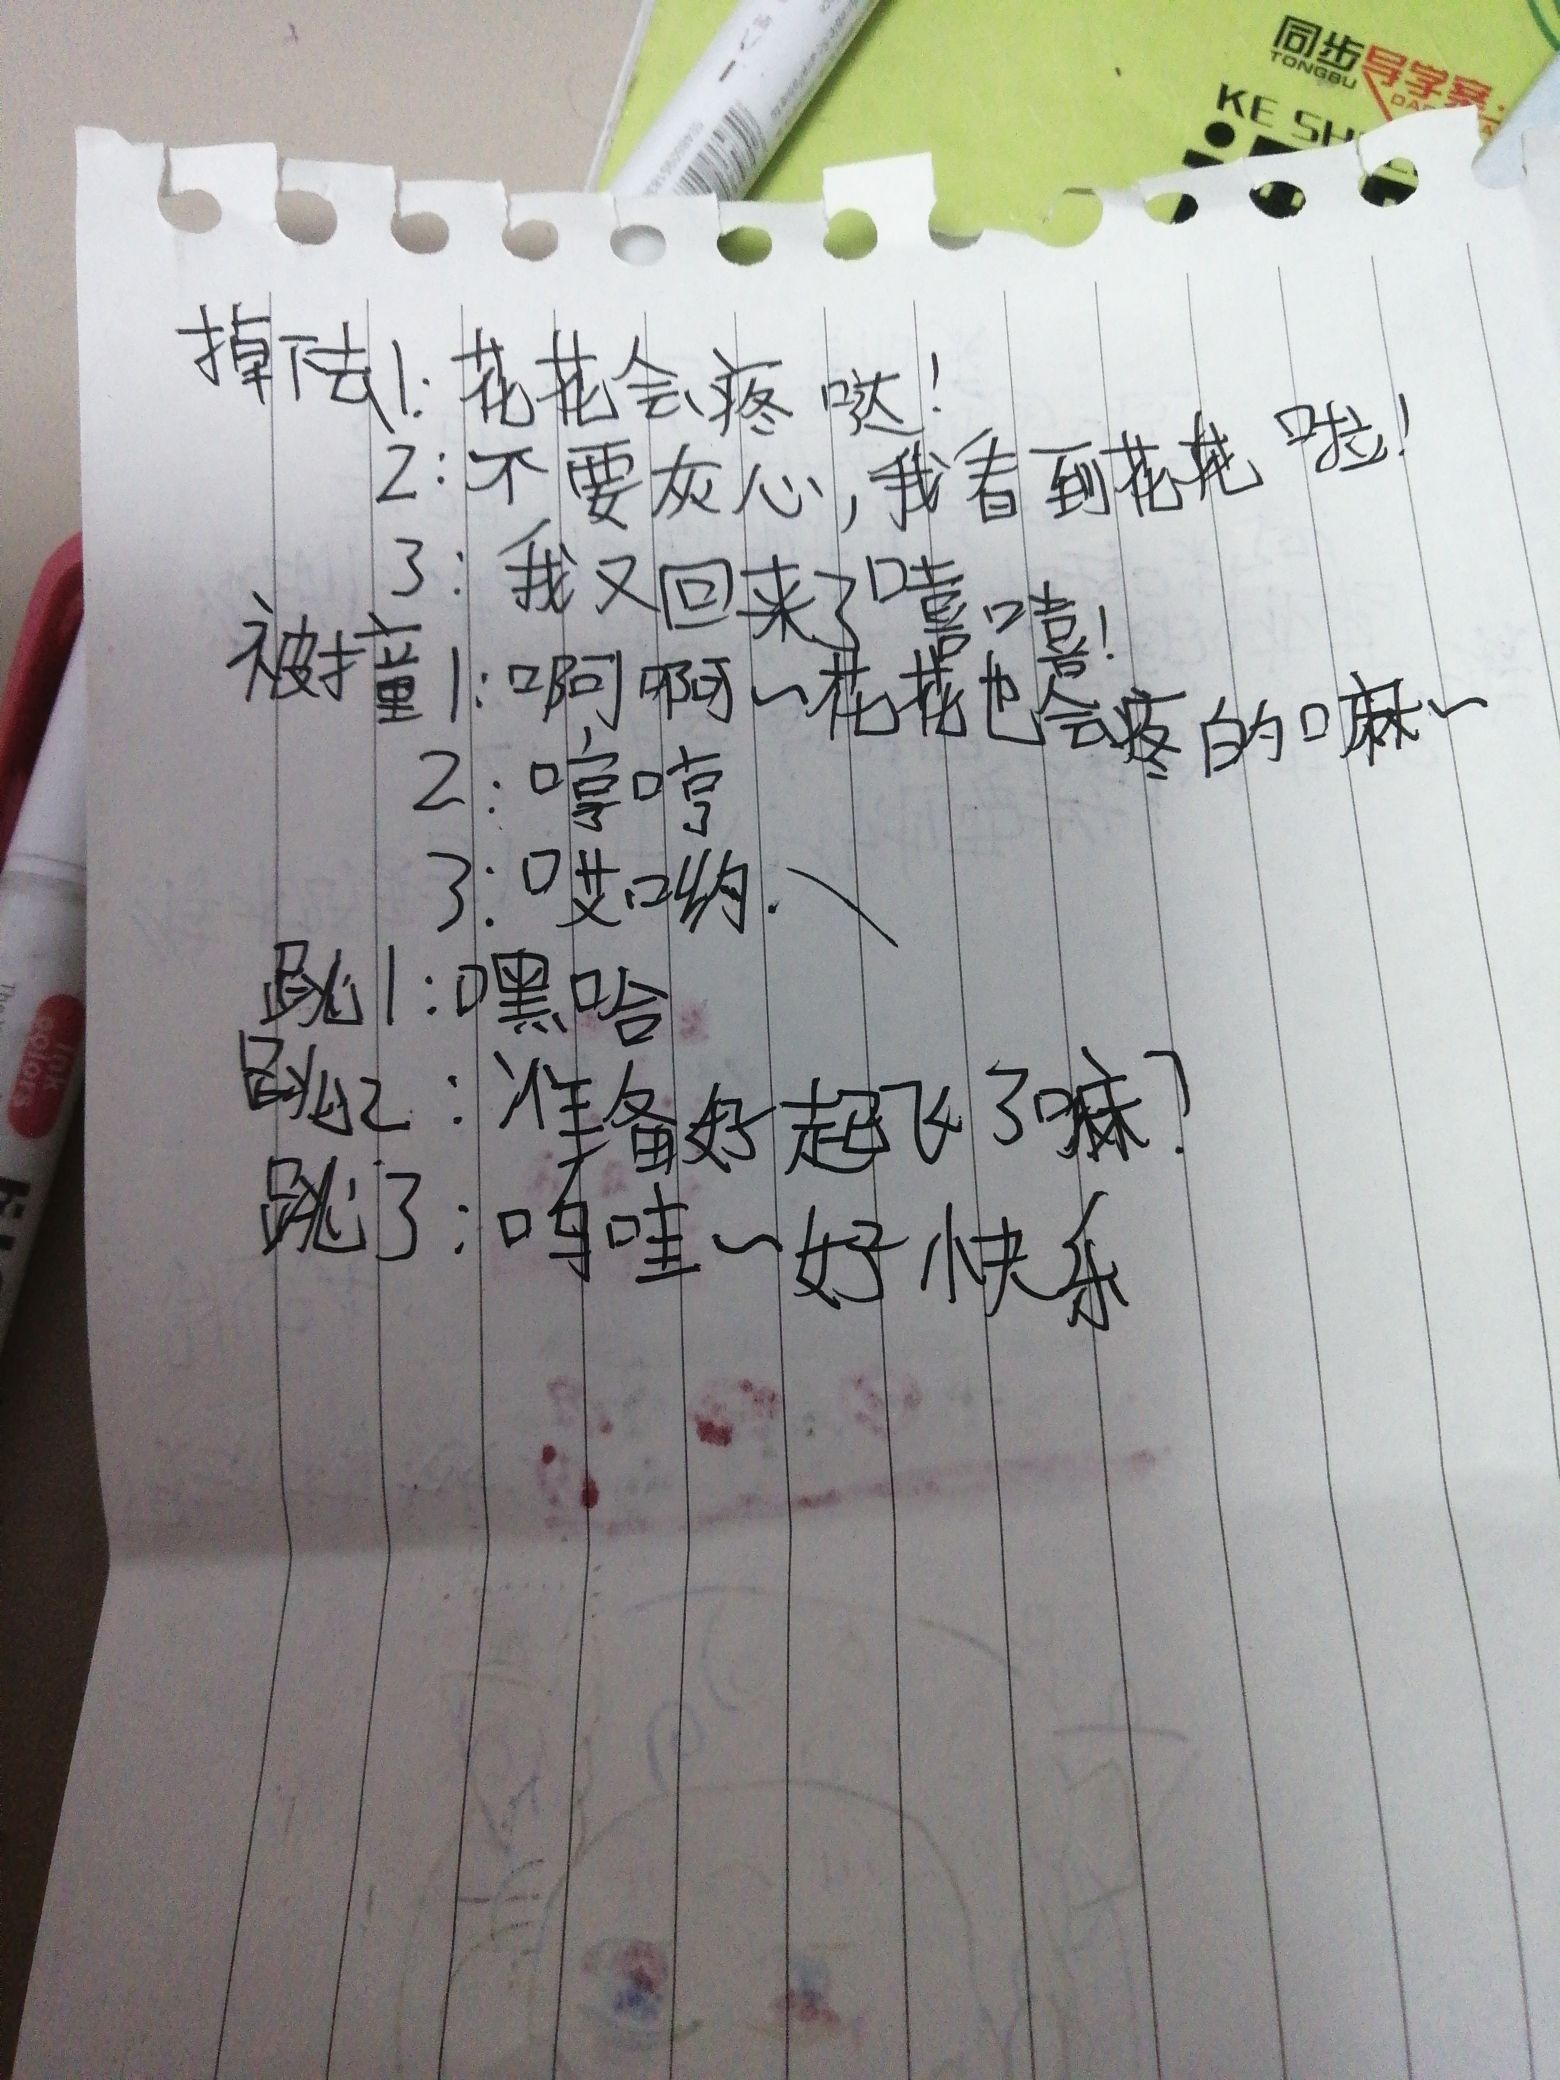 同步导学案
TONGBU DAO
KE SH
掉下去1:花花会疼哒!
2:不要灰心,我看到花花啦!
3:我又回来了嘻嘻!
被撞1:啊啊~花花也会疼的嘛~
2:哼哼
3:哎哟.
跳1:嘿哈
跳2:准备好起飞了嘛?
跳3:呜哇~好快乐
ink
colors